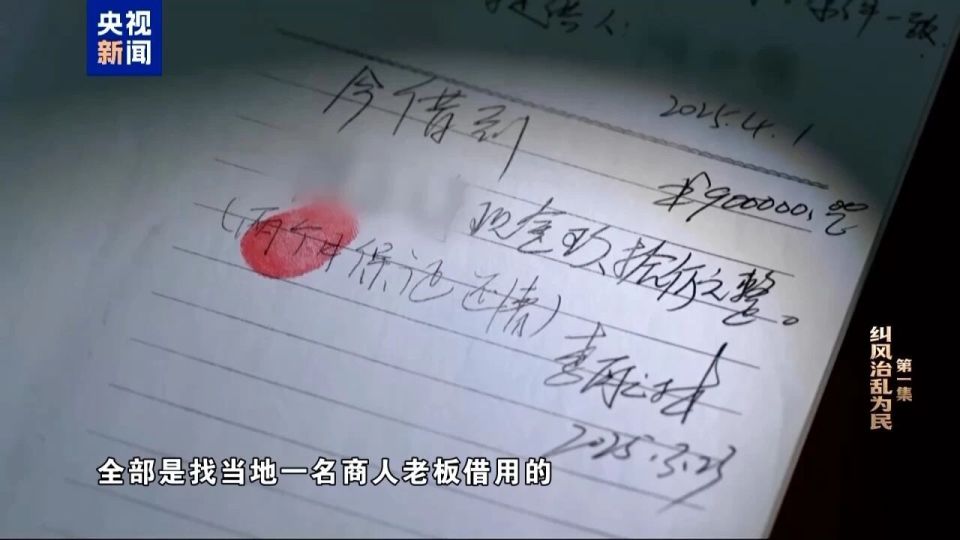 央视
新闻
提供人：
件一致
2025.4.1
今借到
¥900000.00
现金玖拾万元整。
（两个月保证还清）
2025.3.23
第一集
纠风治乱为民
全部是找当地一名商人老板借用的